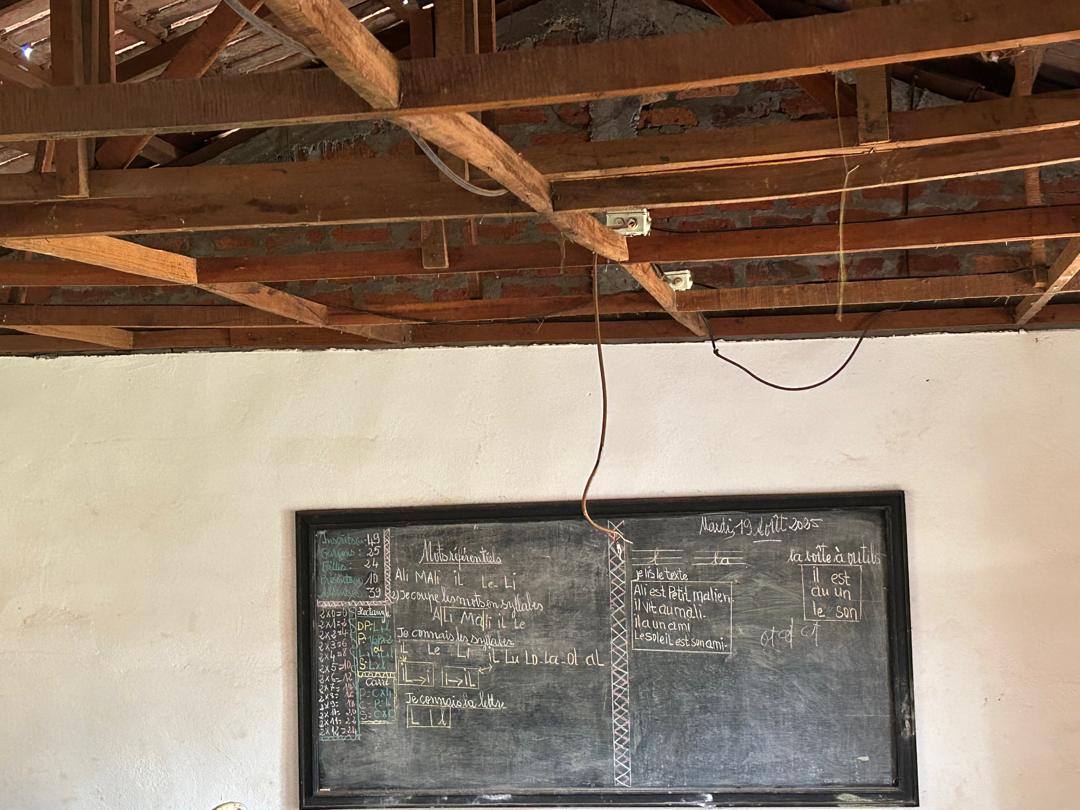 Inscrits : 49
Garçons : 25
Filles : 24
Présents : 10
39
2x0=0
2x1=2
2x2=4
2x3=6
2x4=8
2x5=10
2x6=12
2x12=24
Rectangle
Carré
Mots référentiels
Ali MALi iL Le Li
2) Je coupe les mots en syllabes
ALi Mali iL Le
Je connais les syllabes
iL Le Li iL Lu Lo La Ol aL
iL→i i→iL
Je connais la lettre
L l
Mardi, 19 Août 2025
l la
je lis le texte
Ali est Petit malien.
il vit au mali.
il a un ami
Le soleil est son ami.
la boîte à outils
il est
du un
le son